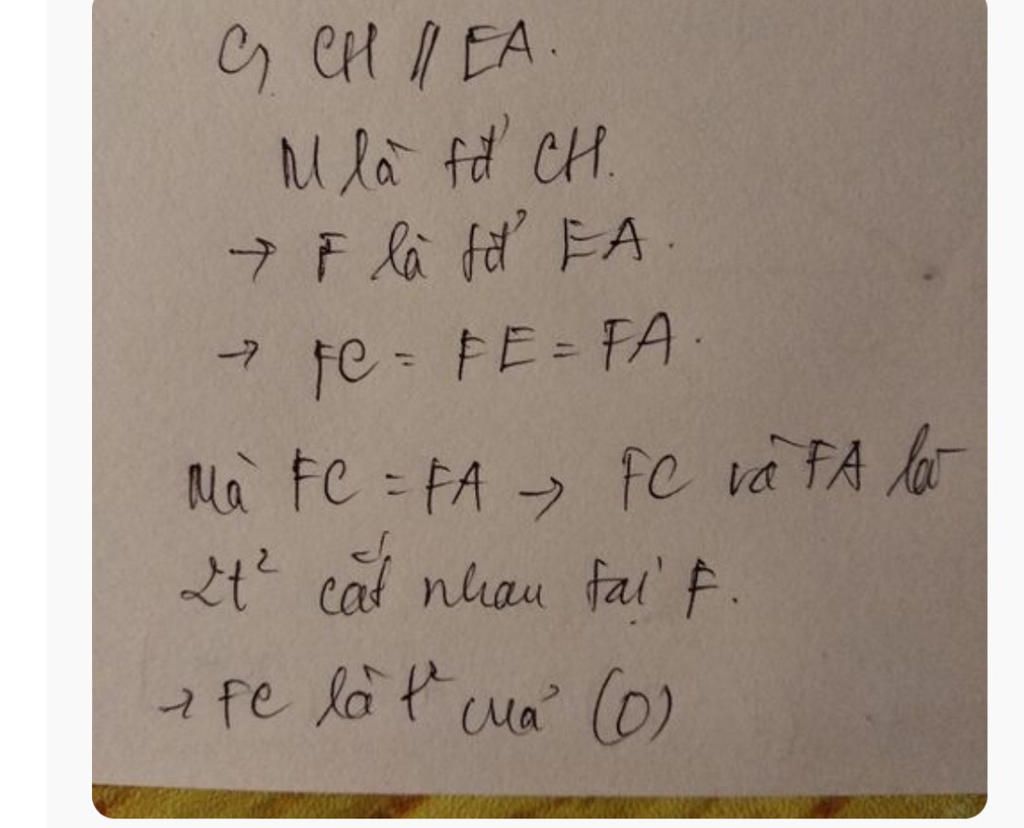 c, CH // EA.
M là tđ' CH.
→ F là tđ' EA.
→ FC = FE = FA.
Mà FC = FA → FC và FA là
2t² cắt nhau tại F.
→ FC là t² của (O)